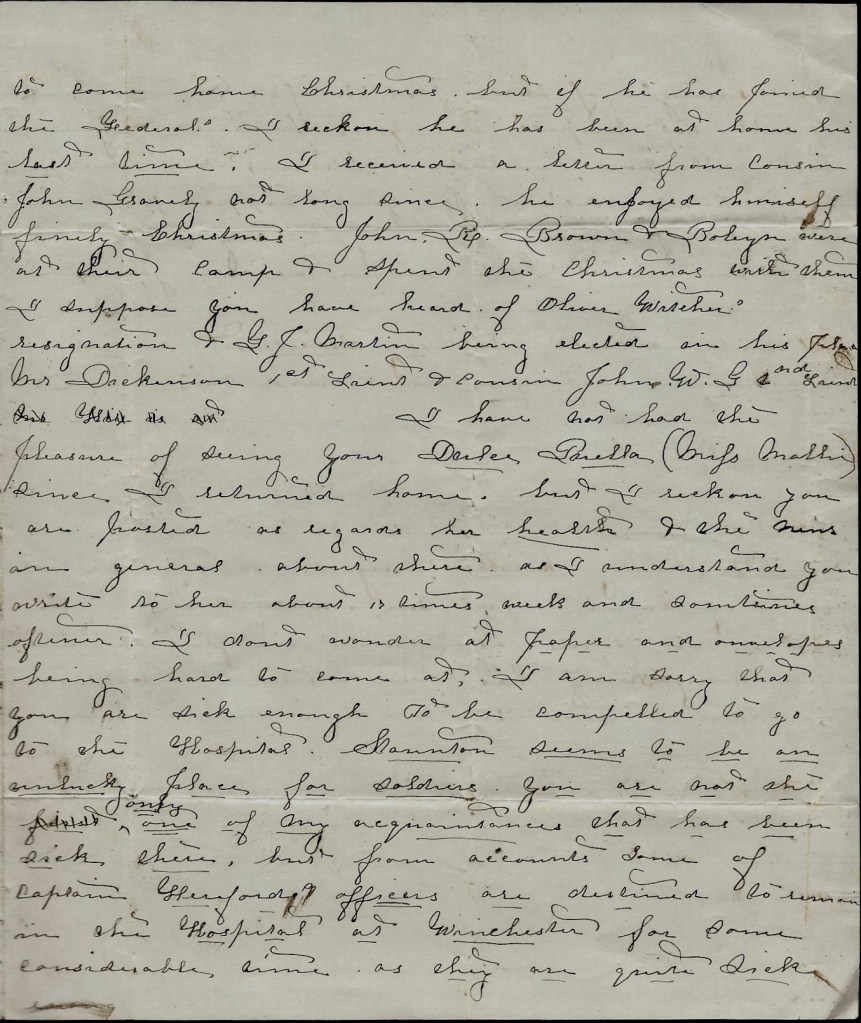 to come home Christmas. but if he has joined
the Federals. I reckon he has been at home his
last time. I received a letter from Cousin
John Gravely not long since, he enjoyed himself
finely Christmas. John, R. Brown & Boleyn were
at their Camp & spent the Christmas with them
I suppose you have heard of Oliver Witcher's
resignation & G. J. Martin being elected in his place
Mr Dickenson 1st Lieut & cousin John W. G 2nd Lieut
I have not had the
pleasure of seeing your Dulce (Miss Mattie)
since I returned home. but I reckon you
are posted as regards her health & the news
in general about there. as I understand you
write to her about times week and somtimes
oftener. I dont wonder at paper and envelopes
being hard to come at, I am sorry that
you are sick enough to be compelled to go
to the Hospital. Staunton seems to be an
unlucky place for soldiers. you are not the
only one of my acquaintances that has been
sick there, but from accounts some of
Captain Hereford's officers are destined to remain
in the Hospital at Winchester for some
considerable time as they are quite sick